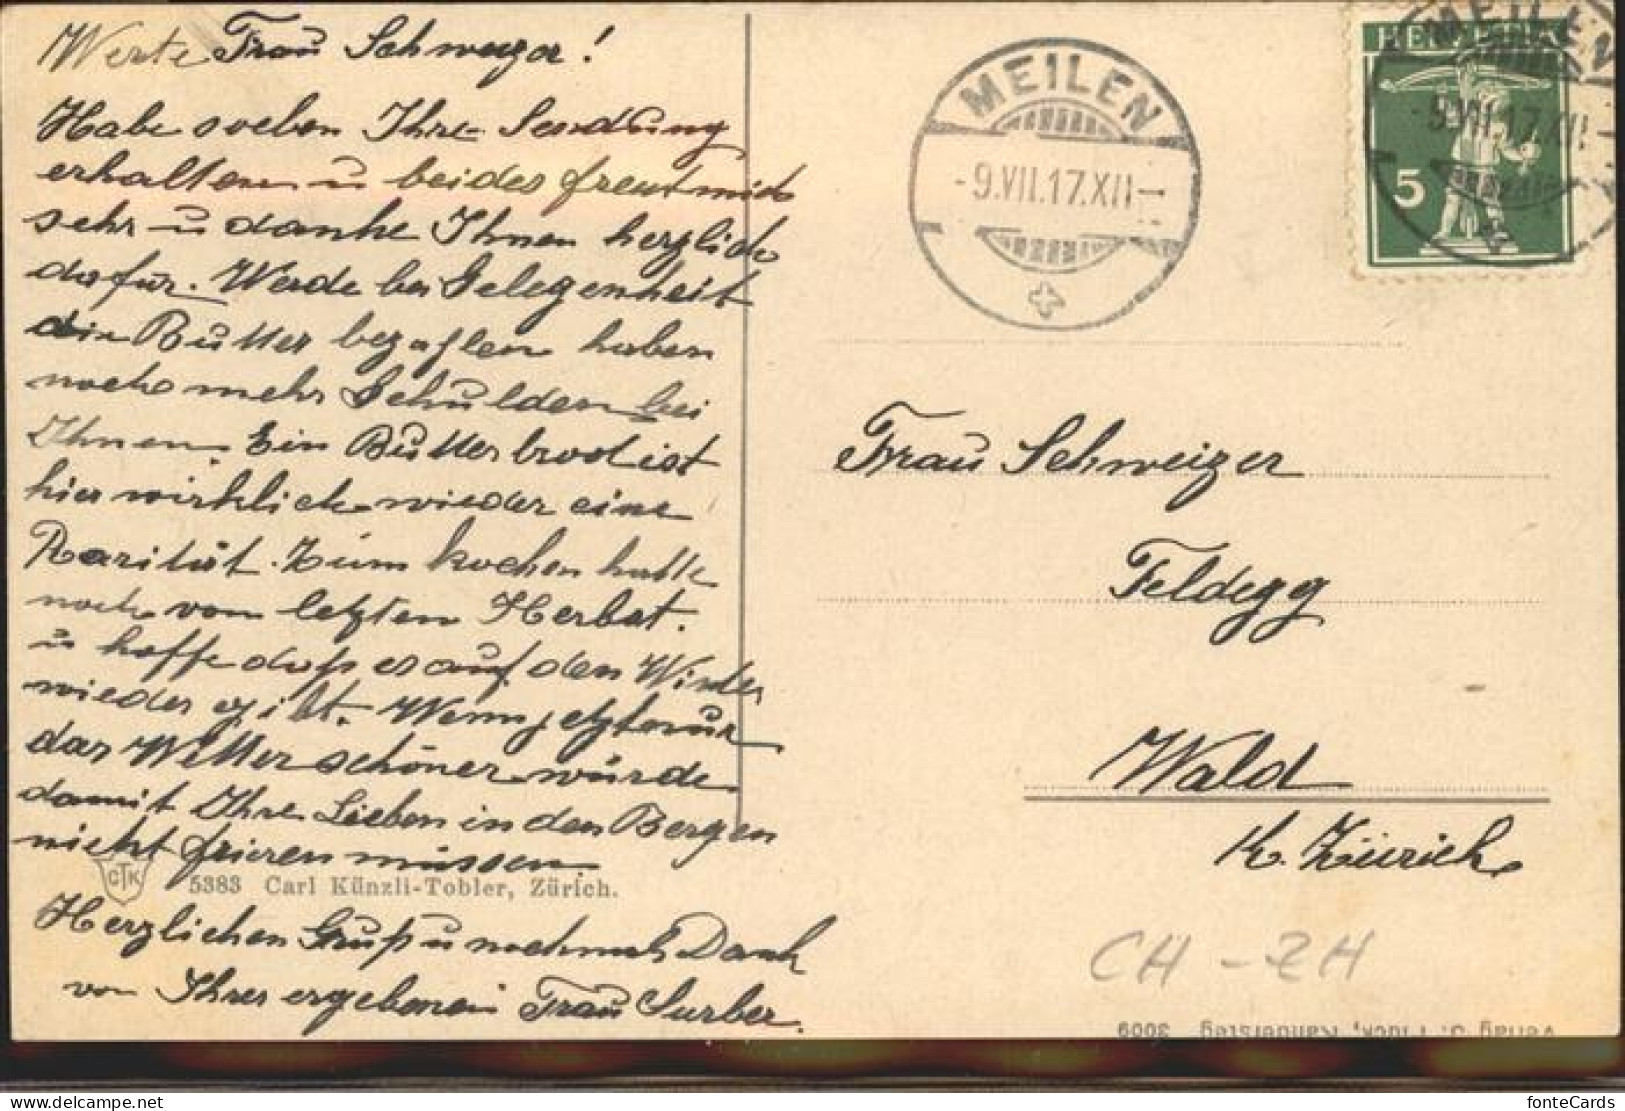 Werte Frau Schweizer!
Habe soeben Ihre Sendung
erhalten u beides freut mich
sehr u danke Ihnen herzlich
dafür. Werde bei Gelegenheit
die Butter bezahlen haben
noch mehr Schulden bei
Ihnen. Ein Butterbrod ist
hier wirklich wieder eine
Rarität. Zum kochen hatte
noch vom letzten Herbst.
u hoffe dass es auf den Winter
wieder gibt. Wenn jetzt nur
das Wetter schöner würde
damit Ihre Lieben in den Bergen
nicht frieren müssen.
CTK
5383 Carl Künzli-Tobler, Zürich.
Herzlichen Gruß u nochmals Dank
von Ihrer ergebenen Frau Surber.
MEILEN
-9.VII.17.XII-
HELVETIA
5
MEILEN
-9.VII.17.XII-
Frau Schweizer
Feldegg
Wald
K. Zürich
CH-ZH
Verlag J. Fluck, Kandersteg 3009
fonteCards
delcampe.net